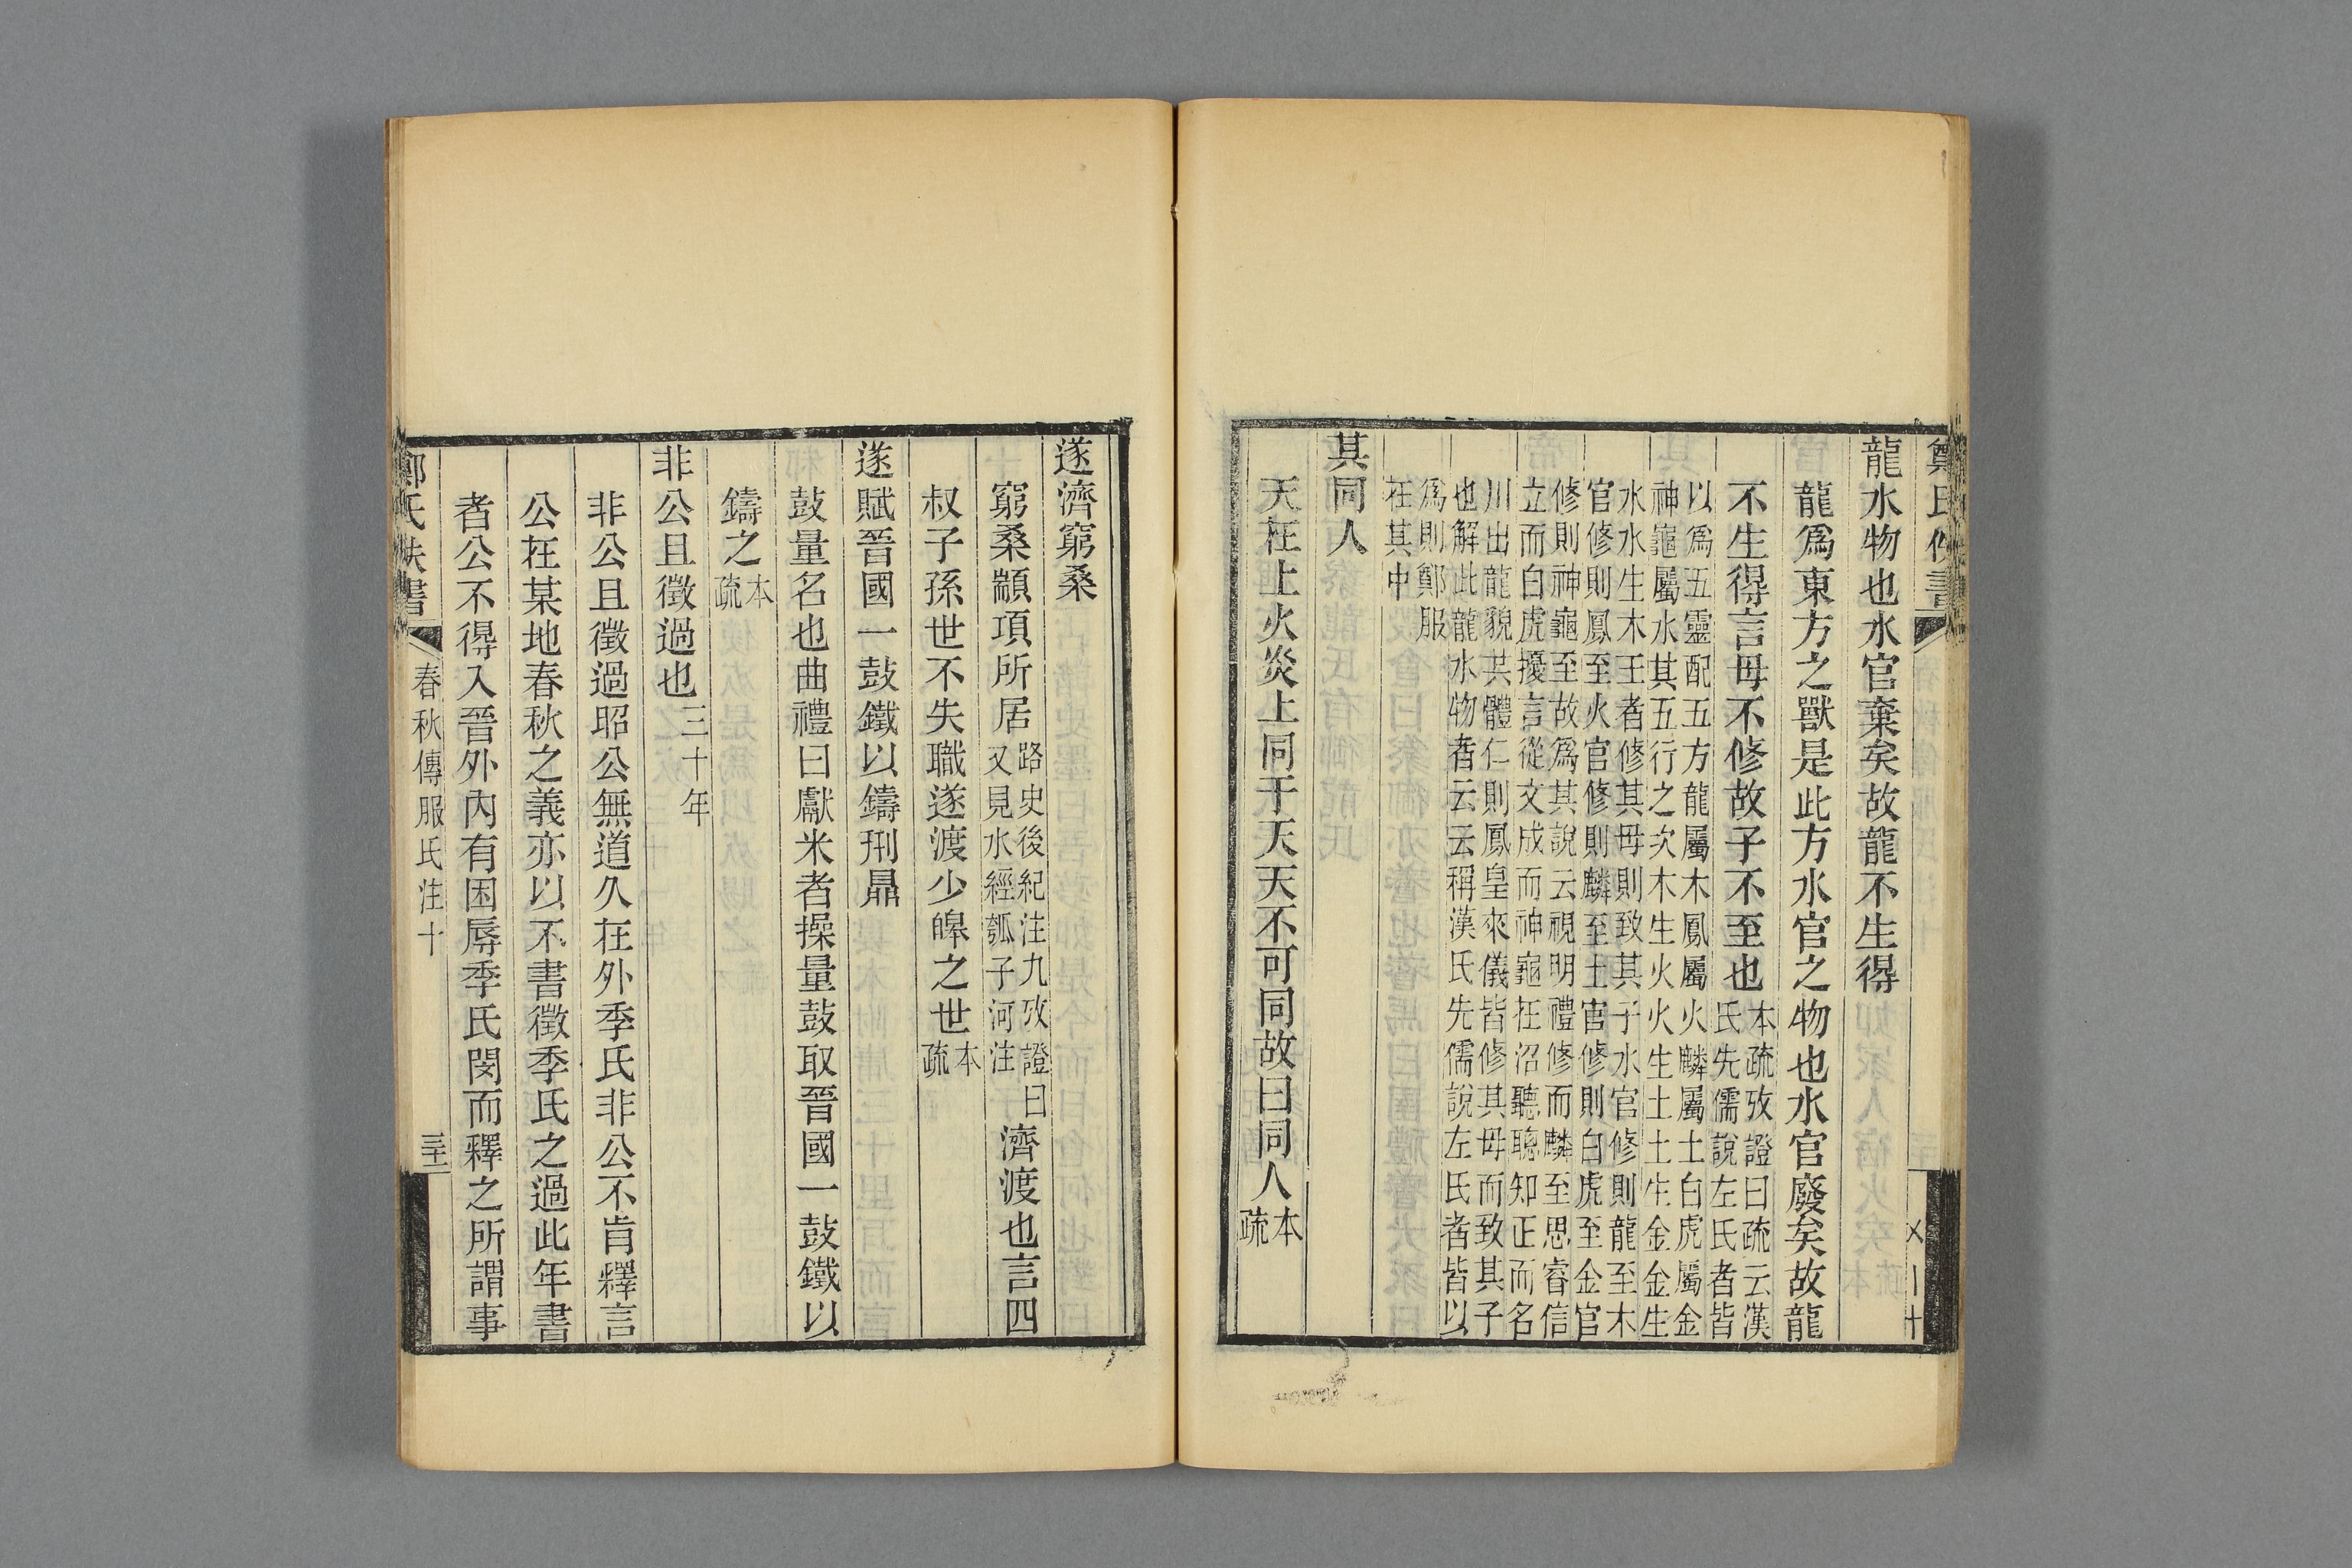 鄭氏佚書
龍水物也水官棄矣故龍不生得
龍爲東方之獸是此方水官之物也水官廢矣故龍
不生得言母不修故子不至也本疏攷證曰疏云漢
氏先儒說左氏者皆
以爲五靈配五方龍屬木鳳屬火麟屬土白虎屬金
神龜屬水其五行之次木生火火生土土生金金生
水水生木王者修其母則致其子水官修則龍至木
官修則鳳至火官修則麟至土官修則白虎至金官
修則神龜至故爲其說云視明禮修而麟至思睿信
立而白虎擾言從文成而神龜在沼聽聰知正而名
川出龍貌共體仁則鳳皇來儀皆修其母而致其子
也解此龍水物者云云稱漢氏先儒說左氏者皆以
爲則鄭服
在其中
其同人
天在上火炎上同于天天不可同故曰同人本疏
遂濟窮桑
窮桑顓項所居路史後紀注九攷證曰
又見水經瓠子河注
濟渡也言四
叔子孫世不失職遂渡少皞之世本疏
遂賦晉國一鼓鐵以鑄刑鼎
鼓量名也曲禮曰獻米者操量鼓取晉國一鼓鐵以
鑄之本疏
非公且徵過也三十年
非公且徵過昭公無道久在外季氏非公不肯釋言
公在某地春秋之義亦以不書徵季氏之過此年書
者公不得入晉外內有困辱季氏閔而釋之所謂事
鄭氏佚書
春秋傳服氏注十